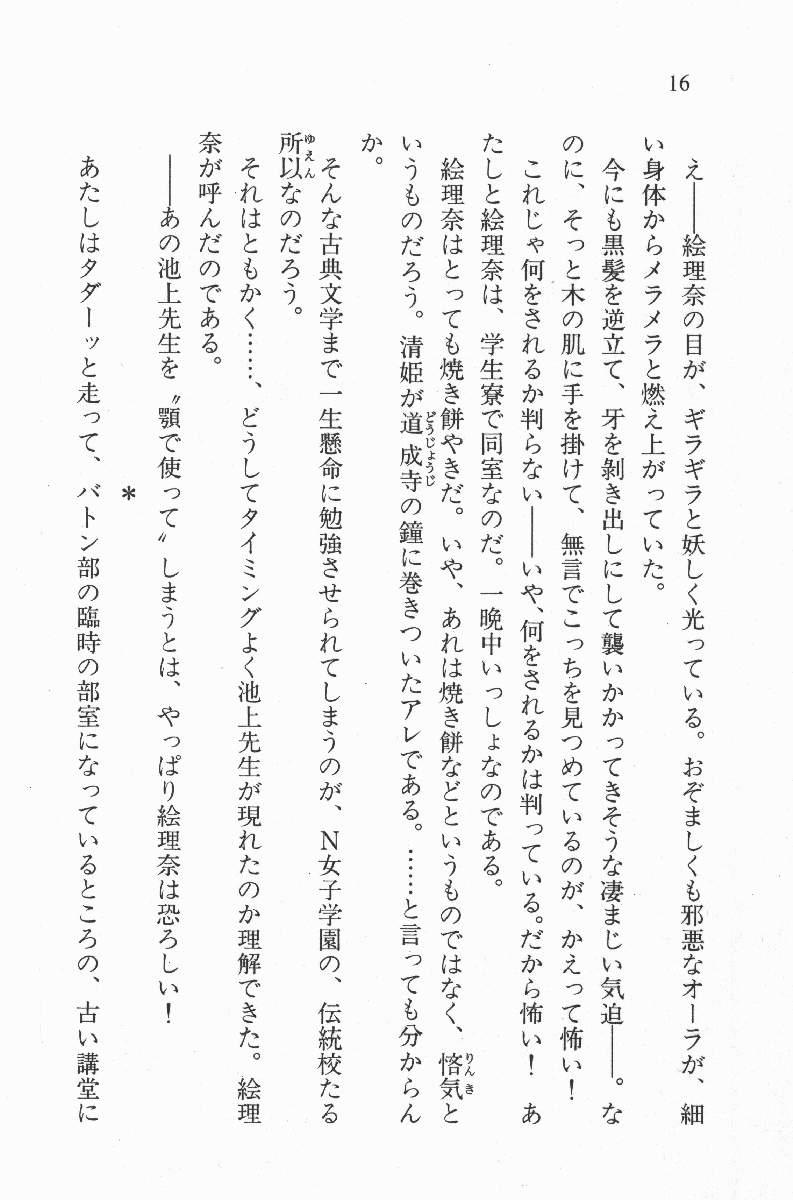 16
え――絵理奈の目が、ギラギラと妖しく光っている。おぞましくも邪悪なオーラが、細
い身体からメラメラと燃え上がっていた。
今にも黒髪を逆立て、牙を剝き出しにして襲いかかってきそうな凄まじい気迫――。な
のに、そっと木の肌に手を掛けて、無言でこっちを見つめているのが、かえって怖い！
これじゃ何をされるか判らない――いや、何をされるかは判っている。だから怖い！　あ
たしと絵理奈は、学生寮で同室なのだ。一晩中いっしょなのである。
絵理奈はとっても焼き餅やきだ。いや、あれは焼き餅などというものではなく、悋気と
りんき
いうものだろう。清姫が道成寺の鐘に巻きついたアレである。……と言っても分からん
どうじょうじ
か。
そんな古典文学まで一生懸命に勉強させられてしまうのが、Ｎ女子学園の、伝統校たる
所以なのだろう。
ゆえん
それはともかく……、どうしてタイミングよく池上先生が現れたのか理解できた。絵理
奈が呼んだのである。
――あの池上先生を〝顎で使って〟しまうとは、やっぱり絵理奈は恐ろしい！
＊
あたしはタダーッと走って、バトン部の臨時の部室になっているところの、古い講堂に